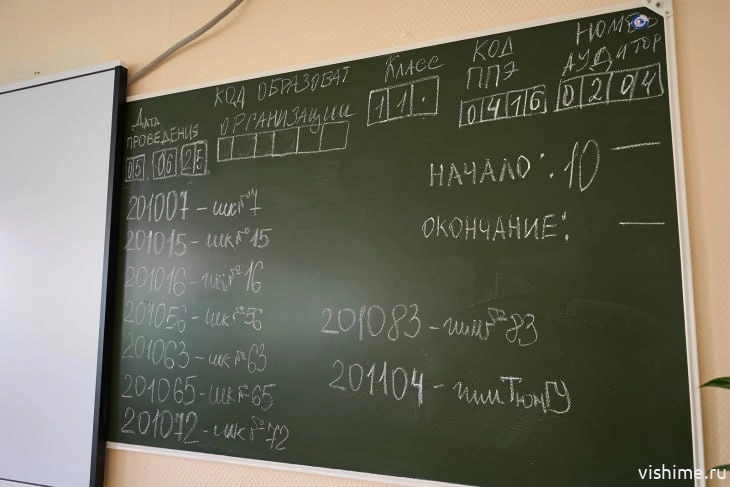 Дата
ПРОВЕДЕНИЯ
05 06 25
КОД ОБРАЗОВАТ
ОРГАНИЗАЦИИ
КЛАСС
11.
КОД
ППЭ
0416
НОМЕР
АУДИТОР
0204
НАЧАЛО: 10 —
ОКОНЧАНИЕ: —
201007 – шк №7
201015 – шк №15
201016 – шк №16
201056 – шк №56
201063 – шк №63
201065 – шк № 65
201072 – шк № 72
201083 – гим № 83
201104 – гим. ТюмГУ
vishime.ru